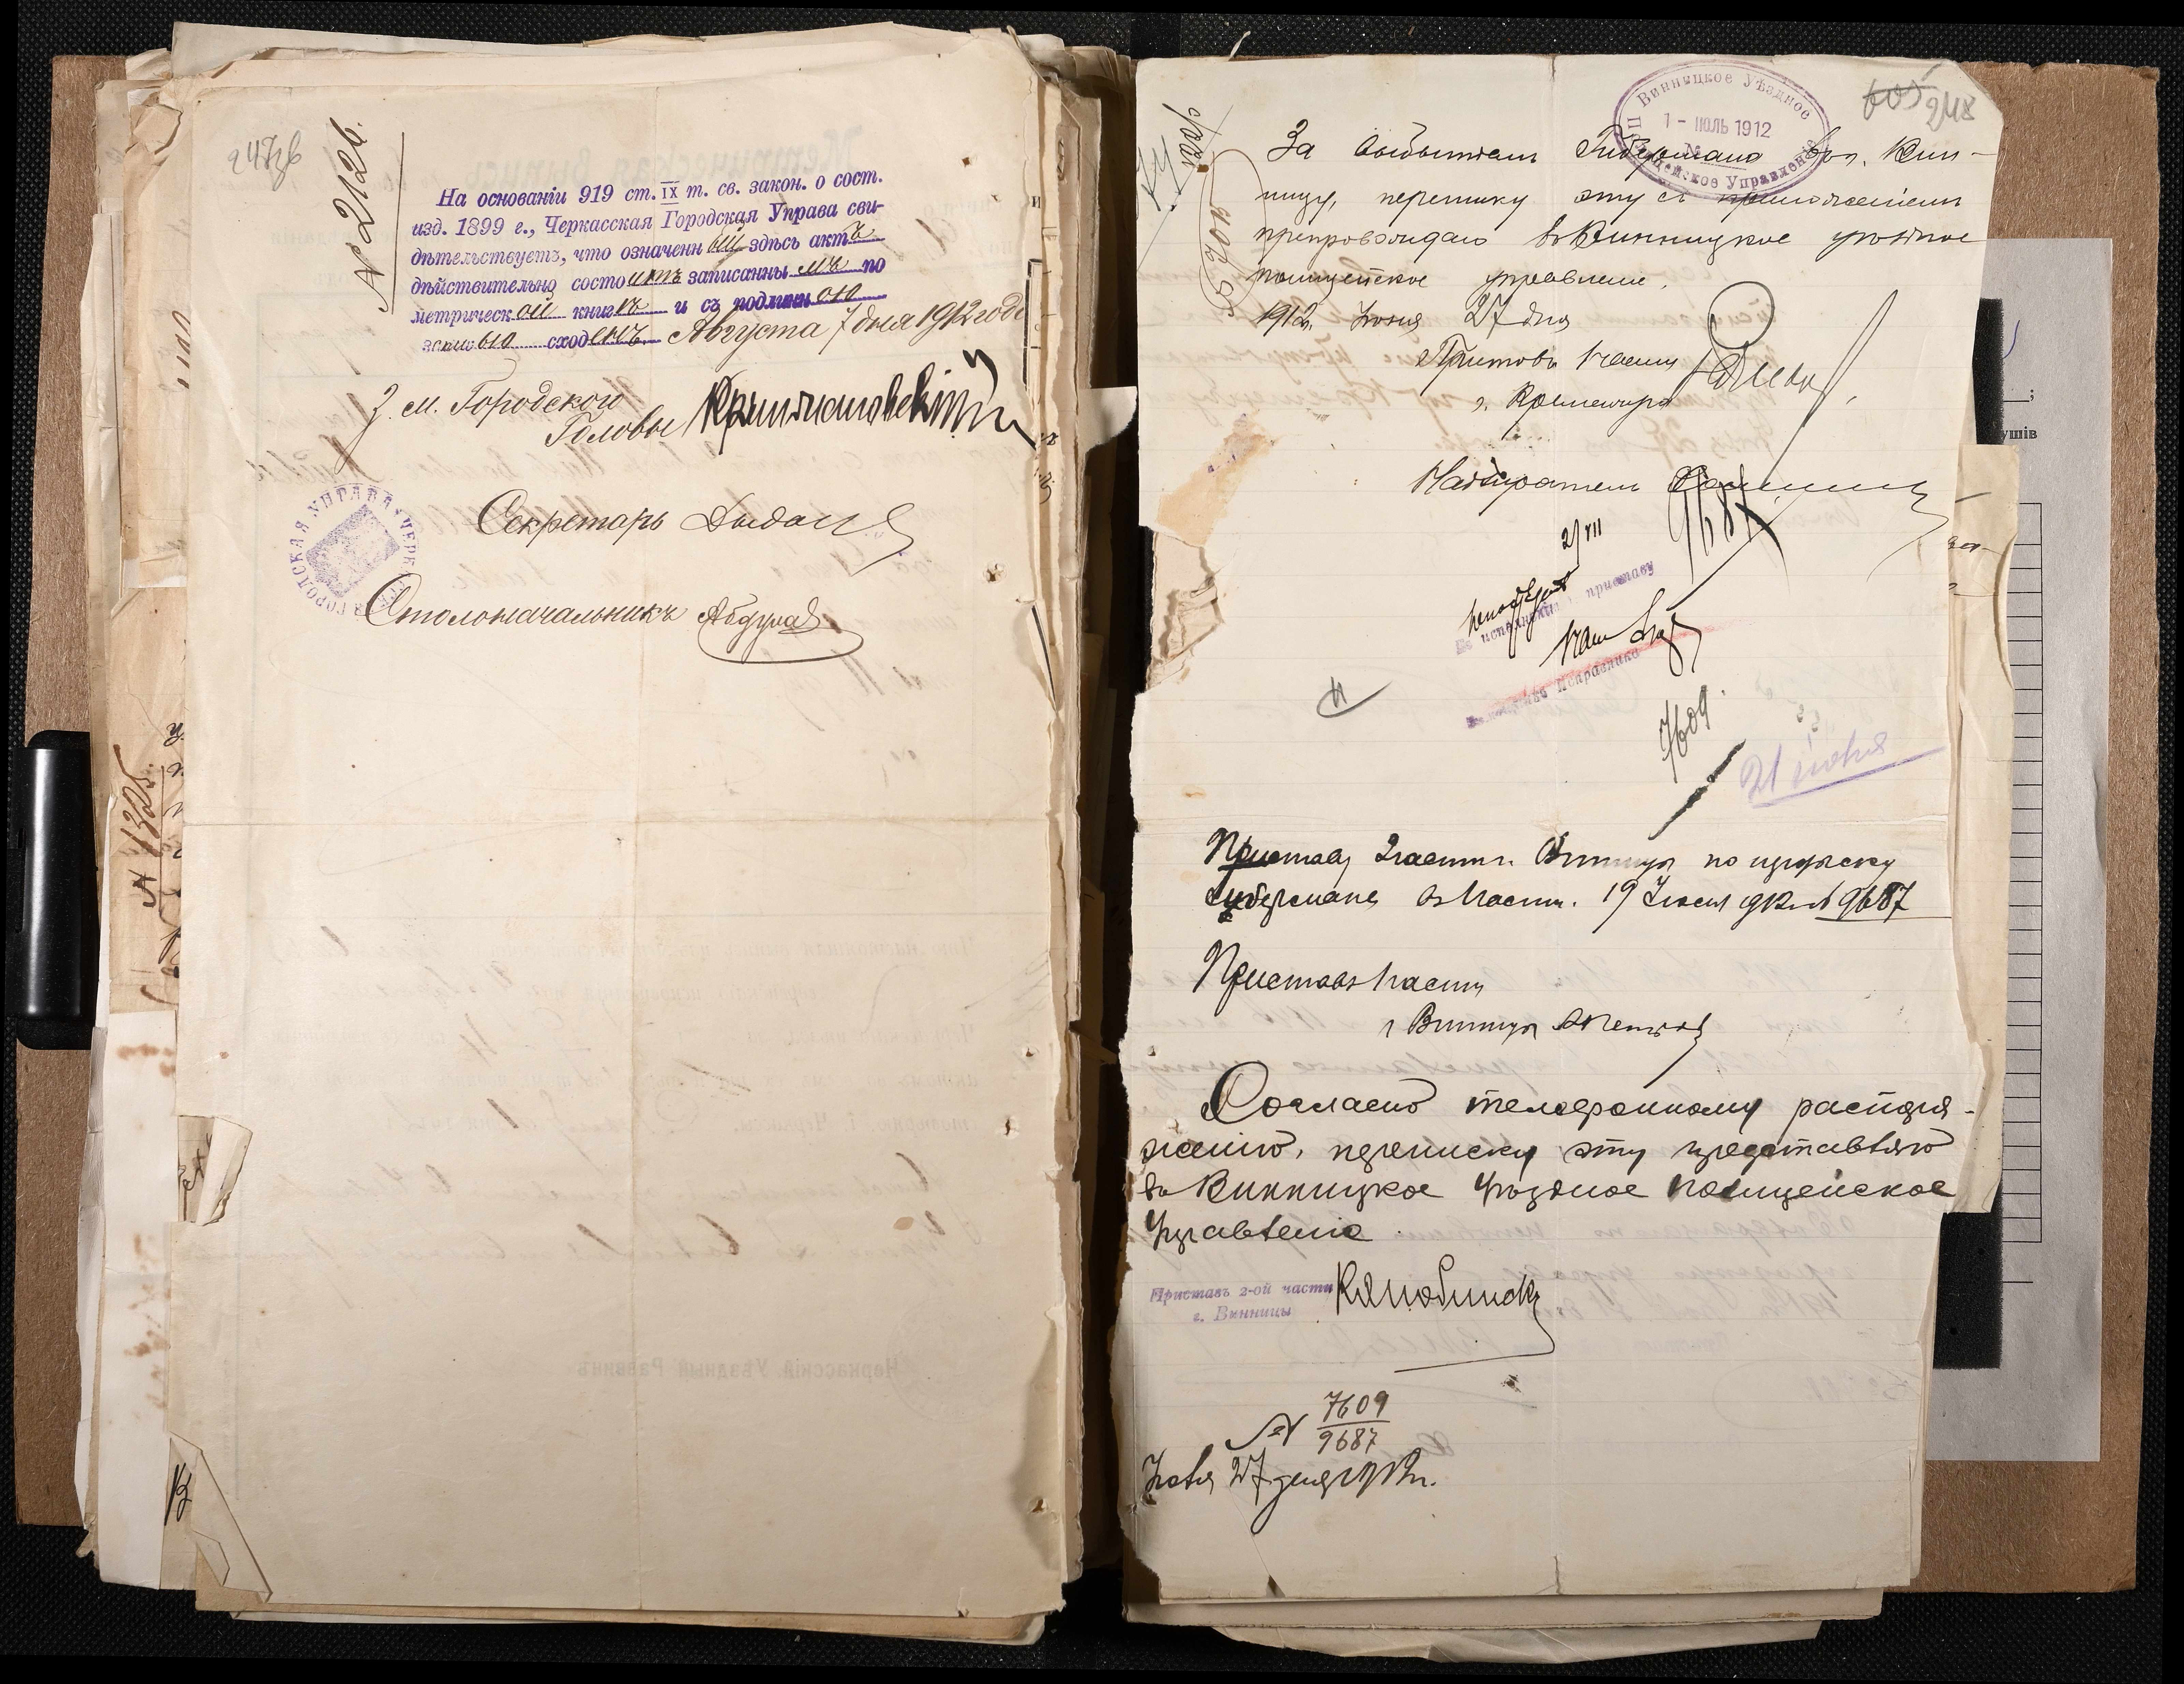 247об
№ 2126.
На основаніи 919 ст. IX т. св. закон. о сост.
изд. 1899 г., Черкасская Городская Управа сви-
дѣтельствуетъ, что означенный здѣсь актъ
дѣйствительно состоитъ записаннымъ по
метрической книгѣ и съ подлинною
записью сходенъ. Августа 7 дня 1912 года
З. м. Городского
Головы
Секретарь
ЧЕРКАССКАЯ ГОРОДСКАЯ УПРАВА
Столоначальникъ
№ 1325.
Винницкое Уѣздное
1 - ИЮЛЬ 1912
Полицейское Управленіе
605 248
За выбытіемъ Губермана въ г. Вин-
ницу, переписку эту съ приложеніемъ
препровождаю въ Винницкое уѣздное
полицейское управленіе.
1912 г. Іюня 27 дня
Приставъ 1 части
г. Кременчуга
Надзиратель
9687
2/VII
приставу
Исправника
7609.
21 июня
Приставу 2 части г. Винницы по розыску
Губермана въ 1 части. 19 Іюня 912 г. № 9687
Приставъ 1 части
г. Винницы
Согласно телефонному распоря-
женію, переписку эту представляю
въ Винницкое Уѣздное Полицейское
Управленіе.
Приставъ 2-ой части
г. Винницы
№ 7609
9687
27 дня 1912 г.